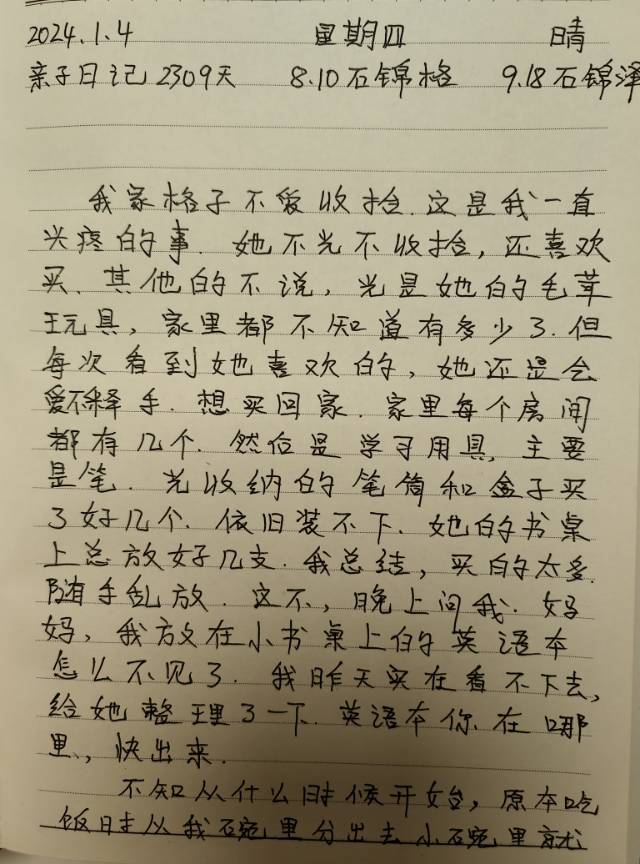 2024.1.4 星期四 晴
亲子日记2309天 8.10石锦格 9.18石锦泽
我家格子不爱收拾.这是我一直
头疼的事.她不光不收拾,还喜欢
买.其他的不说,光是她的毛草
玩具,家里都不知道有多少了.但
每次看到她喜欢的,她还是会
爱不释手.想买回家.家里每个房间
都有几个.然后是学习用具,主要
是笔.光收纳的笔筒和盒子买
了好几个.依旧装不下.她的书桌
上总放好几支.我总结,买的太多.
随手乱放.这不,晚上问我.妈
妈,我放在小书桌上的英语本
怎么不见了.我昨天实在看不下去,
给她整理了一下.英语本你在哪
里,快出来.
不知从什么时候开始,原本吃
饭时从我碗里分出去小碗里就